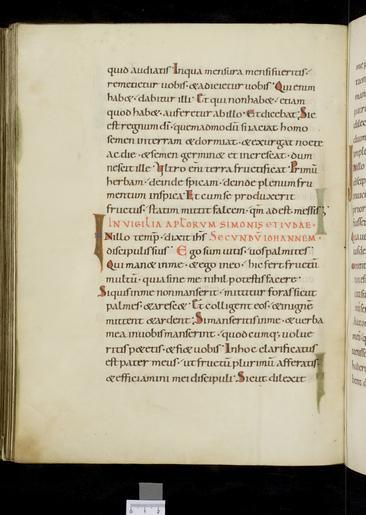 quid audiatis Inqua mensura mensi fueritis.
remetietur uobis. & adicietur uobis. Qui enim
hab&. dabitur illi. Et qui non hab&. etiam
quod hab&. auferetur ab illo. Et dicebat. Sic
est regnum di. quemadmodū si iaciat homo
semen in terram & dormiat. & exurgat nocte
ac die. & semen germin& et increscat. dum
nescit ille. Vltro eni terra fructificat. Primū
herbam. deinde spicam. deinde plenum fru
mentum in spica. Et cum se produxerit
fructus. statim mittit falcem. qm adest messis.
IN VIGILIA APLORVM SIMONIS ET IVDAE.
In illo temp. dixit ihs SECVNDV IOHANNEM.
discipulis suis. Ego sum uitis. uos palmites.
Qui man& in me. & ego in eo. hic fert fructū
multū. quia sine me nihil potestis facere.
Si quis in me non manserit. mittetur foras sicut
palmes. & aresc&. Et colligent eos. & in ignē
mittent & ardent. Si manseritis in me. & uerba
mea in uobis manserint. quodcumq. uolue
ritis pet&is. & fi& uobis. In hoc clarificatus
est pater meus. ut fructū plurimū afferatis.
& efficiamini mei discipuli. Sicut dilexit